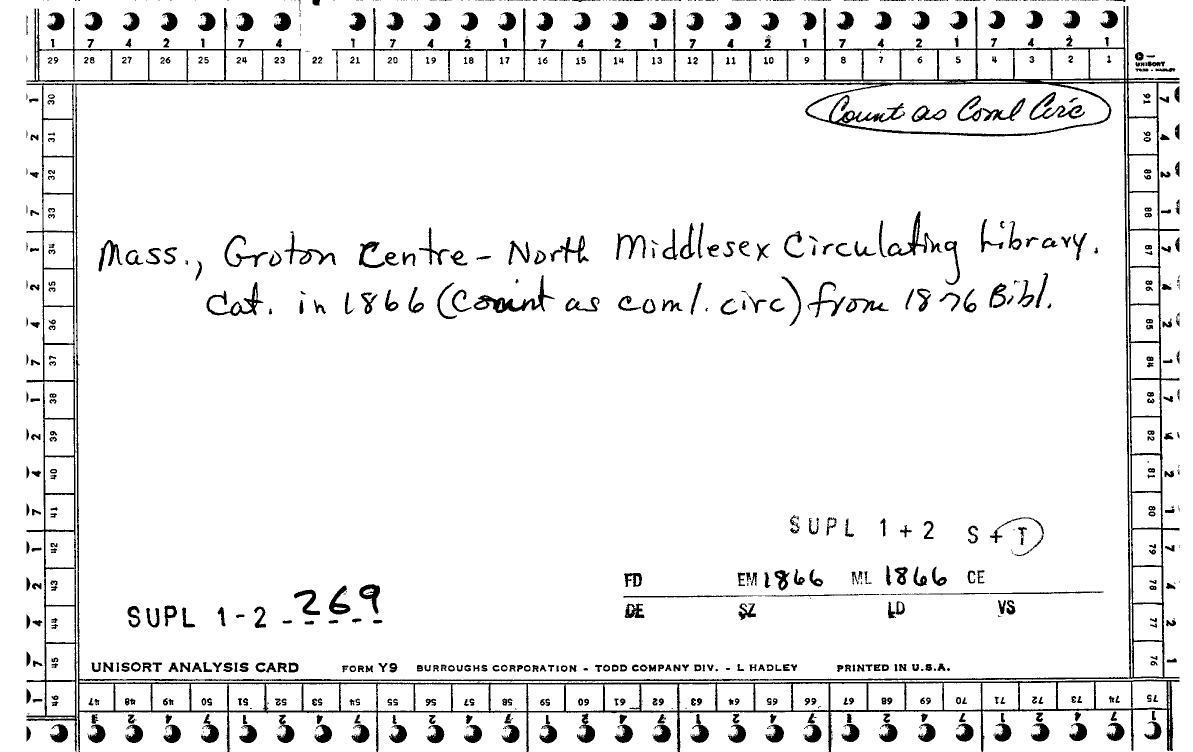 7 4 2 1 7 4 1 7 4 2 1 7 4 2 1 7 4 2 1 7 4 2 1 7 4 2 1
29 28 27 26 25 24 23 22 21 20 19 18 17 16 15 14 13 12 11 10 9 8 7 6 5 4 3 2 1
UNISORT
TODD - HADLEY
Count as Coml Circ
Mass., Groton Centre - North Middlesex Circulating Library.
Cat. in 1866 (Count as coml. circ) from 1876 Bibl.
SUPL 1 + 2 S + T
FD EM 1866 ML 1866 CE
DE SZ LD VS
SUPL 1 - 2 269
UNISORT ANALYSIS CARD FORM Y9 BURROUGHS CORPORATION - TODD COMPANY DIV. - L HADLEY PRINTED IN U.S.A.
30 31 32 33 34 35 36 37 38 39 40 41 42 43 44 45 46
47 48 49 50 51 52 53 54 55 56 57 58 59 60 61 62 63 64 65 66 67 68 69 70 71 72 73 74 75
91 90 89 88 87 86 85 84 83 82 81 80 79 78 77 76